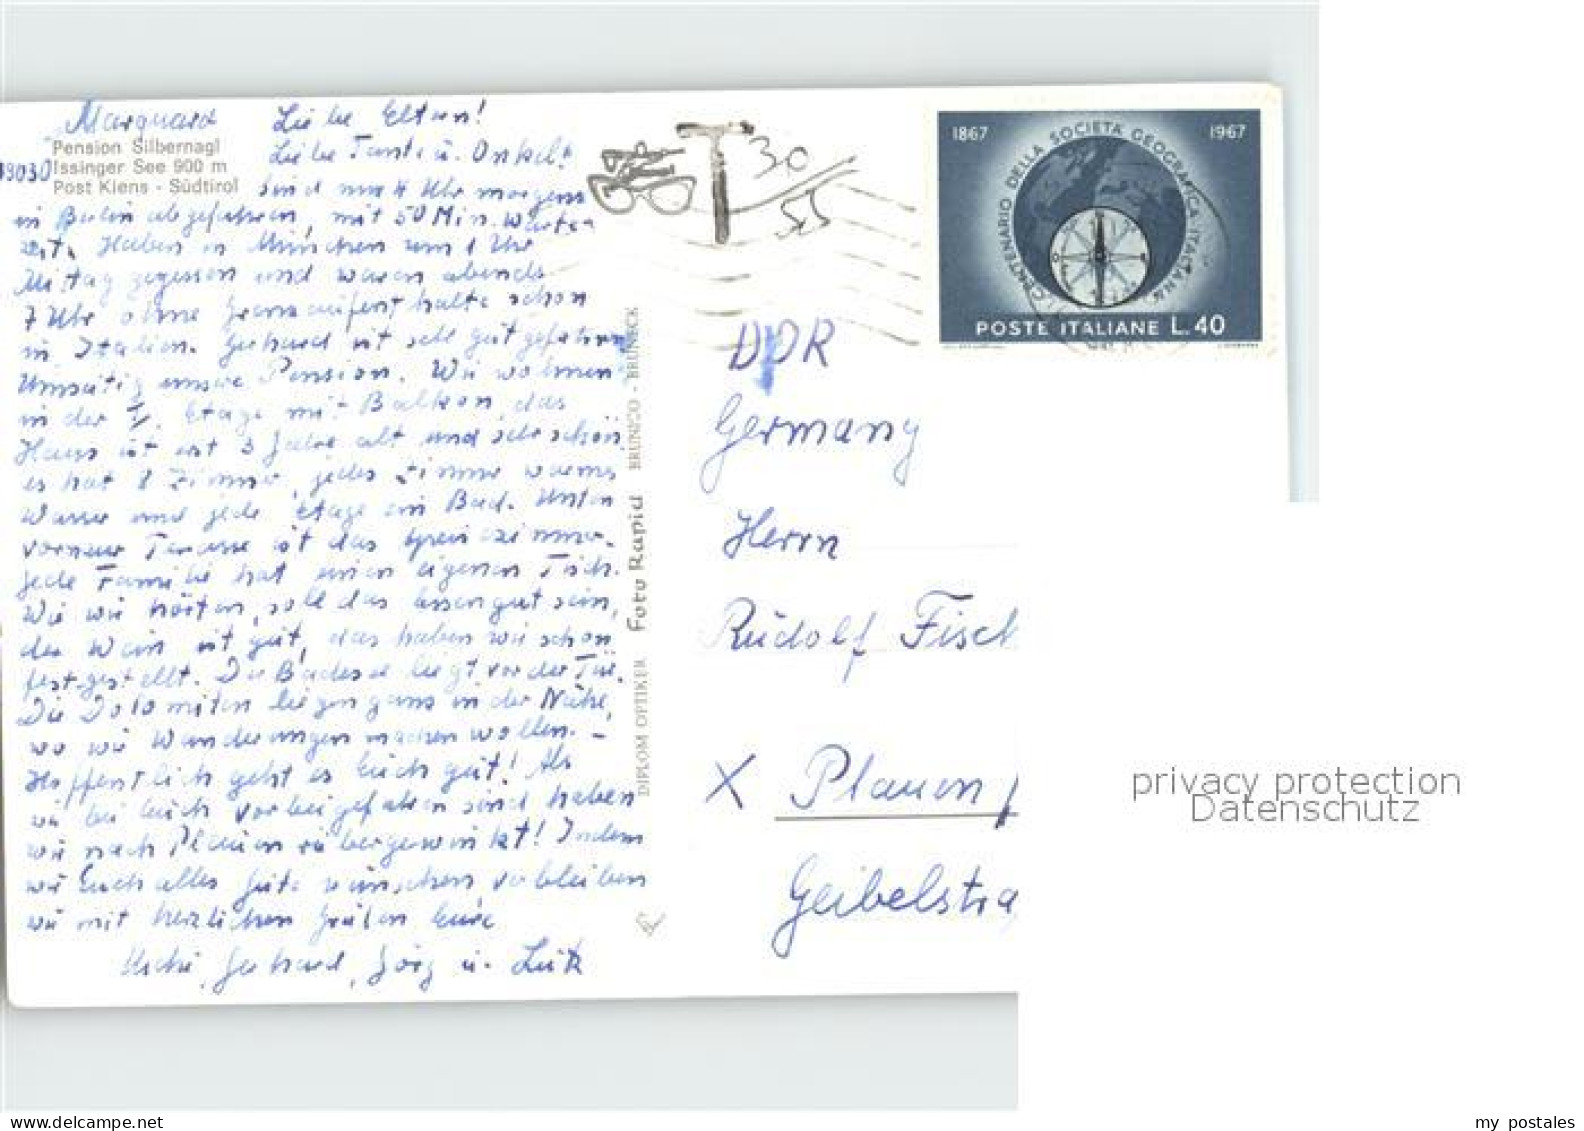 Marquard
Pension Silbernagl
Issinger See 900 m
39030 Post Kiens - Südtirol
Liebe Eltern!
Liebe Tante u. Onkel!
Sind um 4 Uhr morgens
in Berlin abgefahren, mit 50 Min. Warte-
zeit. Haben in München um 1 Uhr
Mittag gegessen und waren abends
7 Uhr ohne Grenzaufenthalte schon
in Italien. Gerhard ist sehr gut gefahren
unsere Pension. Wir wohnen
in der 1. Etage mit Balkon, das
Haus ist erst 3 Jahre alt und sehr schön
es hat 8 Zimmer, jedes Zimmer warmes
Wasser und jede Etage ein Bad. Unten
vorn zur Terasse ist das Speisezimmer.
Jede Familie hat einen eigenen Tisch.
Wie wir hörten, soll das Essen gut sein,
der Wein ist gut, das haben wir schon
festgestellt. Der Badesee liegt vor der Tür.
Die Dolomiten liegen ganz in der Nähe,
wo wir Wanderungen machen wollen. -
Hoffentlich geht es Euch gut! Als
wir bei Euch vorbeigefahren sind haben
wir nach Plauen rübergewinkt! Indem
wir Euch alles Gute wünschen verbleiben
wir mit herzlichen Grüßen Eure
Uschi, Gerhard, Jörg u. Lutz
DIPLOM OPTIKER Foto Rapid BRUNICO - BRUNECK
T 30/55
1867 1967
CENTENARIO DELLA SOCIETÀ GEOGRAFICA ITALIANA
POSTE ITALIANE L.40
DDR
Germany
Herrn
Rudolf Fisch
X Plauen
Geibelstra
privacy protection
Datenschutz
my postales